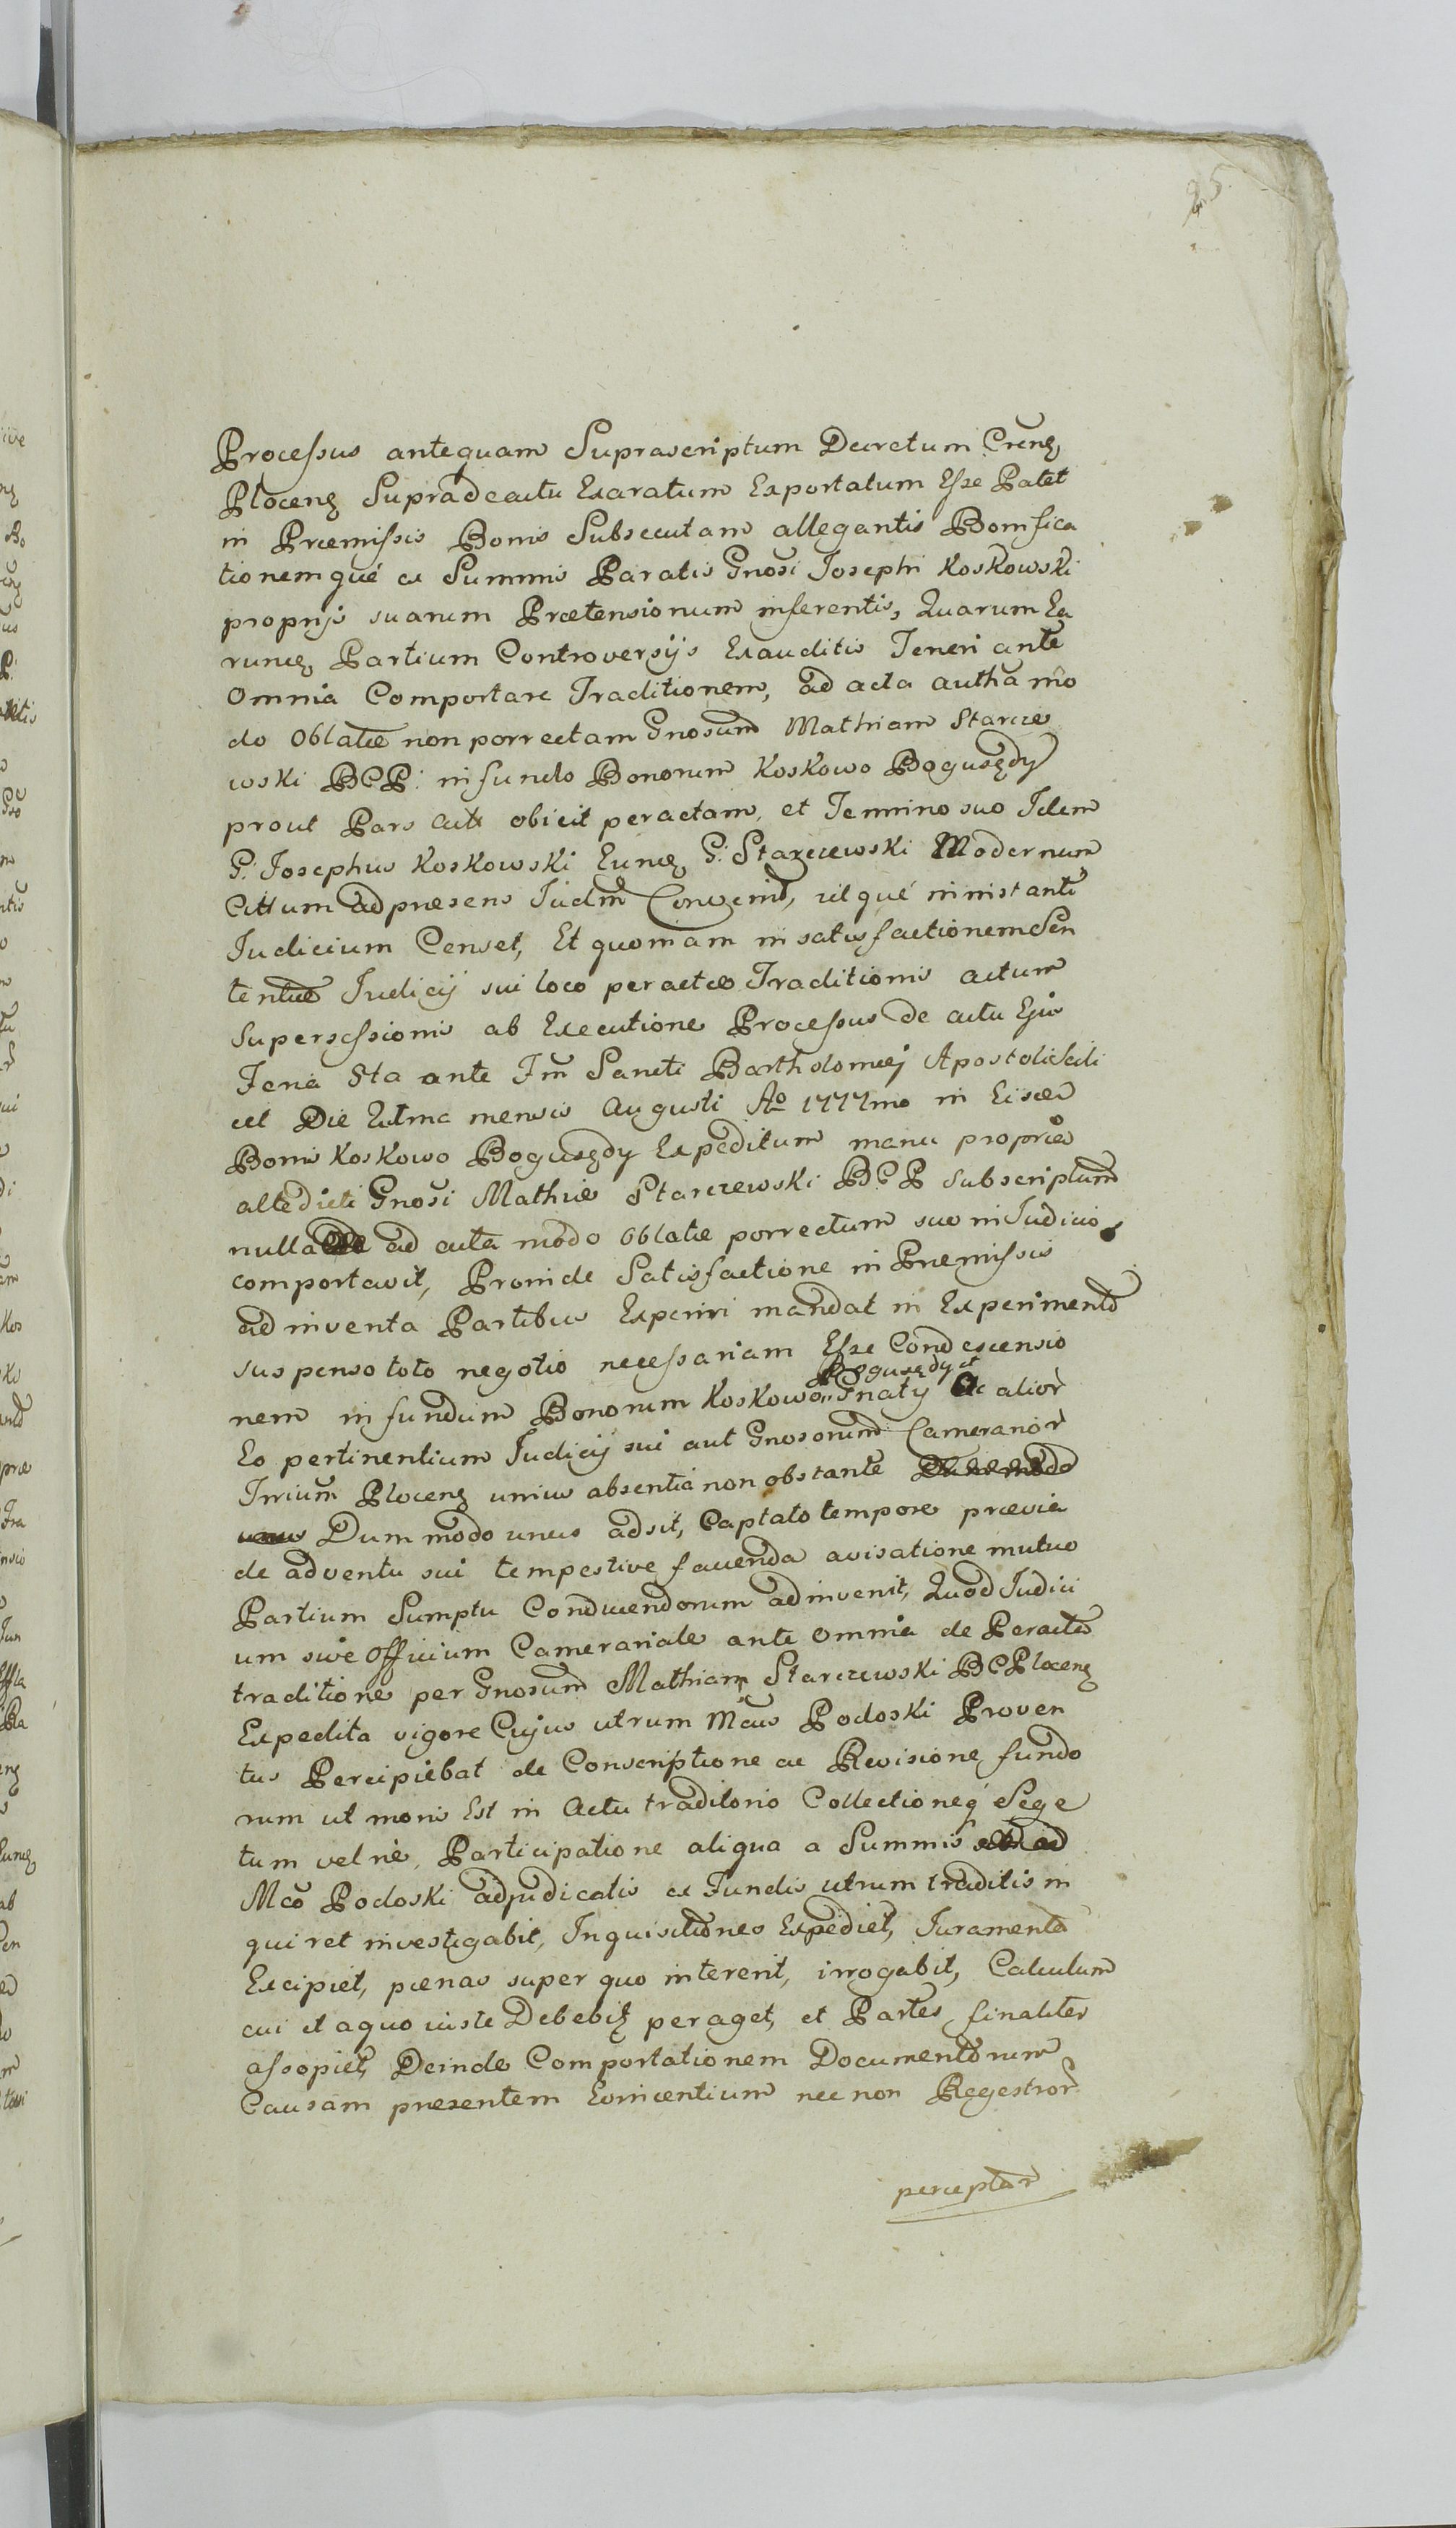 25
Processus antequam Suprascriptum Decretum Crenẽ
Plocenẽ Supradeactu Exaratum Exportatum Esse Patet
in Præmissis Bonis Subsecutam allegantis Bonifica
tionemqué ex Summis Paratis Gnosi Josephi Koskowski
proprijs suarum Prætensionum inferentis, Quarum Ea
rumẽ Partium Controversijs Exauditis Teneri ante
Omnia Comportare Traditionem, ad acta autha mo
do Oblatæ non porrectam Gnosum Mathiam Starcze
wski BCP: in fundo Bonorum Koskowo Bogusędy
prout Pars obicit peractam, et Termino suo Idem
G. Josephus Koskowski Eunẽ G: Starczewski Modernum
Citt um ad præsens Judm Convenit, utqué in instanti
Judicium Censet, Et quoniam in satisfactionem Sen
tentiæ Judicij sui loco peractæ Traditionis actum
Supersessionis ab Executione Processus de actu Ejus
Feria 5ta ante Fm Sancti Bartholomæj Apostoli Scili
cet Die Ultma mensis Augusti Ao 1777mo in Eisdem
Bonis Koskowo Bogusędy Expeditum manu propria
altedicti Gnosi Mathiæ Starczewski BCP subscriptum
nulla ad acta modo Oblatæ porrectum suo in Judicio
comportavit, Proinde Satisfactione in Præmissis
ad inventa Partibus Experiri mandat in Experimento
suspenso toto negotio necessariam Esse Condescensio
nem in fundum Bonorum Koskowo Bogusędy et Gnaty Ac alior
Eo pertinentium Judicij sui aut Gnosorum Camerarior
Trrium Plocenẽ unius absentia non obstante
Dummodo unus adsit, Captato tempore prævia
de adventu sui tempestive fauenda avisatione mutuo
Partium Sumptu Conducendorum adinvenit, Quod Judici
um sive Officium Camerariale ante Omnia de Peracta
traditione per Gnosum Mathiam Starczewski BCPlocenẽ
Expedita vigore Cujus utrum Mcus Podoski Proven
tus Percipiebat de Conscriptione ac Revisione fundo
rum ut moris Est in Actu traditorio Collectioneq Sege
tum vel né, Participatione aliqua a Summis
Mco Podoski adjudicatis ex Fundis utrum traditis in
quiret investigabit, Inquisitiones Expediet, Juramenta
Excipiet, pœnas super quo intererit, irrogabit, Calculum
cui et aquo iuste Debebit peraget, et Partes finaliter
assopiet, Deinde Comportationem Documentorum
Causam præsentem Concernentium nec non Regestror
perceptar